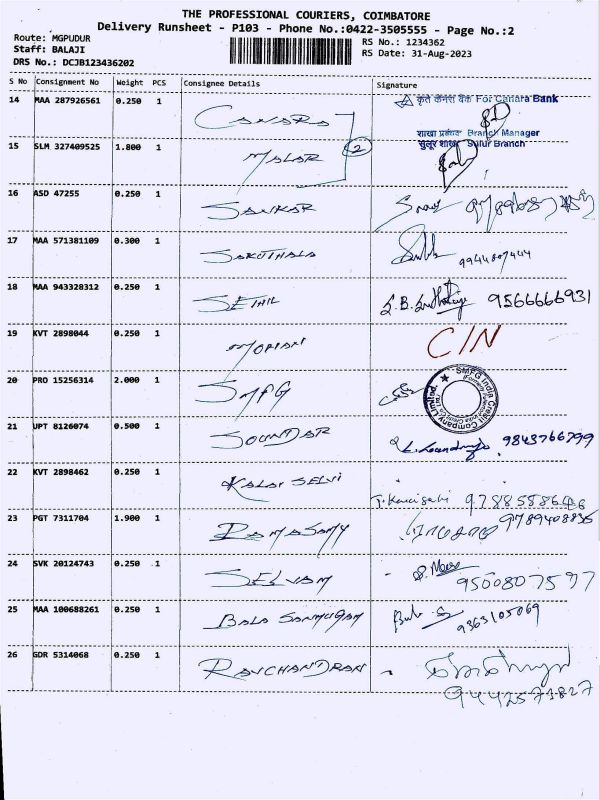 THE PROFESSIONAL COURIERS, COIMBATORE
Delivery Runsheet - P103 - Phone No.:0422-3505555 - Page No.:2
Route: MGPUDUR
RS No.: 1234362
Staff: BALAJI
RS Date: 31-Aug-2023
DRS No.: DCJB123436202
S No Consignment No Weight PCS Consignee Details Signature
14 MAA 287926561 0.250 1 CANARA कृते केनरा बैंक For Canara Bank
शाखा प्रबंधक Branch Manager
सुलूर शाखा Sulur Branch
15 SLM 327409525 1.800 1 MALAR 2
16 ASD 47255 0.250 1 SANKAR
17 MAA 571381109 0.300 1 SAKUTHALA
18 MAA 943328312 0.250 1 SETHIL 9566666931
19 KVT 2898044 0.250 1 MOHAN C/N
20 PRO 15256314 2.000 1 SMFG SMFG India Credit Company Limited.
21 UPT 8126074 0.500 1 SOUNDAR 9843766799
22 KVT 2898462 0.250 1 KALAI SELVI 9788558646
23 PGT 7311704 1.900 1 RAMASAMY 9789408836
24 SVK 20124743 0.250 1 SELVAM 9500807597
25 MAA 100688261 0.250 1 BALA SANMUGAM 9363105069
26 GDR 5314068 0.250 1 RAVICHANDRAN
9442571827